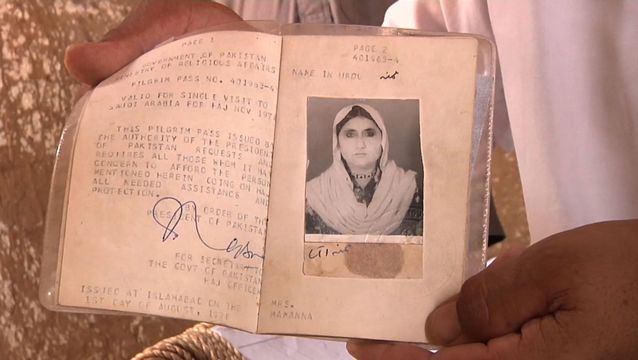 PAGE 1
GOVERNMENT OF PAKISTAN
MINISTRY OF RELIGIOUS AFFAIRS
PILGRIM PASS NO. 401963-4
VALID FOR SINGLE VISIT TO
SAUDI ARABIA FOR HAJ NOV, 197
THIS PILGRIM PASS ISSUED BY
THE AUTHORITY OF THE PRESIDENT
OF PAKISTAN REQUESTS AND
REQUIRES ALL THOSE WHOM IT MAY
CONCERN TO AFFORD THE PERSON
MENTIONED HEREIN GOING ON HAJ
ALL NEEDED ASSISTANCE AND
PROTECTION.
BY ORDER OF THE
PRESIDENT OF PAKISTAN
FOR SECRETARY TO
THE GOVT OF PAKISTAN
HAJ OFFICER
ISSUED AT ISLAMABAD ON THE
1ST DAY OF AUGUST, 1978
PAGE 2
401963-4
NAME IN URDU
MRS.
MAKANNA